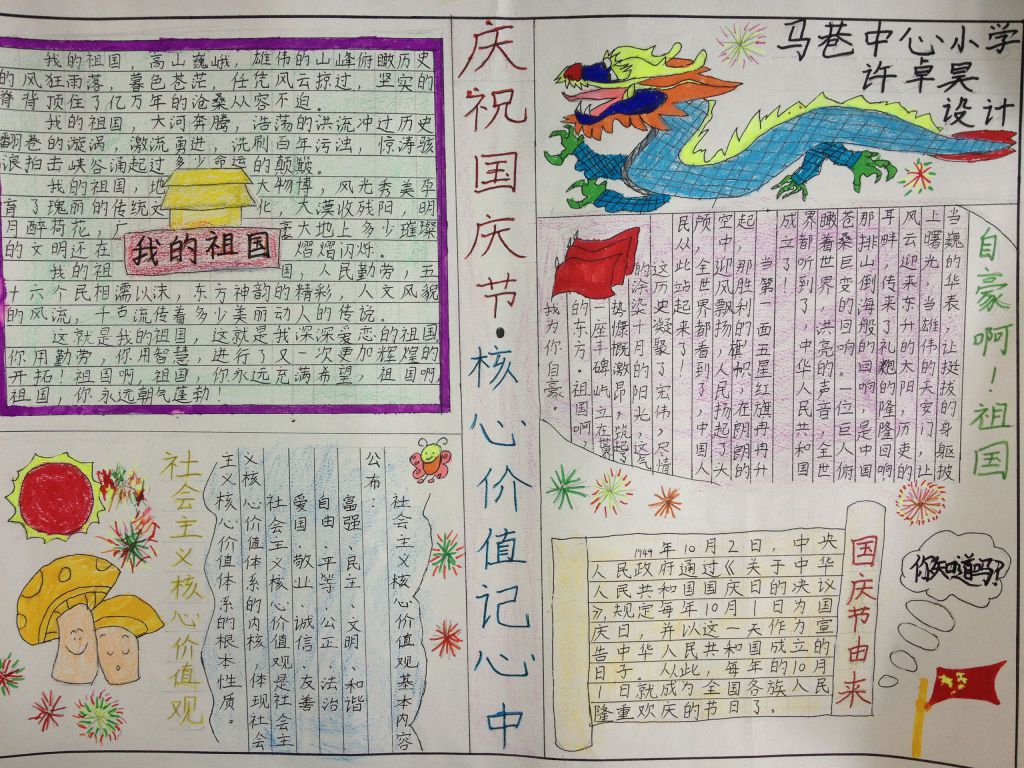 庆祝国庆节·核心价值记心中
马巷中心小学
许卓昊
设计
我的祖国，高山巍峨，雄伟的山峰俯瞰历史
的风狂雨落，暮色苍茫，任凭风云掠过，坚实的
脊背顶住了亿万年的沧桑从容不迫。
我的祖国，大河奔腾，浩荡的洪流冲过历史
翻卷的漩涡，激流勇进，洗刷百年污浊，惊涛骇
浪拍击峡谷涌起过多少命运的颠簸。
我的祖国，地大物博，风光秀美孕
育了瑰丽的传统文化，大漠收残阳，明
月醉荷花，广大地上多少璀璨
的文明还在熠熠闪烁。
我的祖国，人民勤劳，五
十六个民相濡以沫，东方神韵的精彩，人文风貌
的风流，千古流传着多少美丽动人的传说。
这就是我的祖国，这就是我深深爱恋的祖国
你用勤劳，你用智慧，进行了又一次更加辉煌的
开拓！祖国啊，祖国，你永远充满希望，祖国啊，
祖国，你永远朝气蓬勃！
我的祖国
自豪啊！祖国
当巍的华表，让挺拔的身躯披
上曙光，当雄伟的天安门，让
风云迎来东升的太阳，历史的
耳畔，传来了礼炮的隆隆回响
那排山倒海般的回响，是中国
苍桑巨变的回响。一位巨人俯
瞰着世界，洪亮的声音，全世
界都听到了，中华人民共和国
成立了！
当第一面五星红旗冉冉升
起，那胜利的旗帜，在朗朗的
空中迎风飘扬，人民扬起了大
颅，全世界都看到了，中国人
民从此站起来了！
这历史凝聚了宏伟，尽情
的涂染十月的阳光，这气
势慷概激昂，筑
一座丰碑屹立在
的东方。祖国啊，
我为你自豪。
社会主义核心价值观
社会主义核心价值观基本内容
公布：
富强、民主、文明、和谐
自由、平等、公正、法治
爱国、敬业、诚信、友善
社会主义核心价值观是社会主
义核心价值体系的内核，体现社会
主义核心价值体系的根本性质。
国庆节由来
1949年10月2日，中央
人民政府通过《关于中华
人民共和国国庆日的决议
》，规定每年10月1日为国
庆日，并以这一天作为宣
告中华人民共和国成立的
日子。从此，每年的10月
1日就成为全国各族人民
隆重欢庆的节日了。
你知道吗？